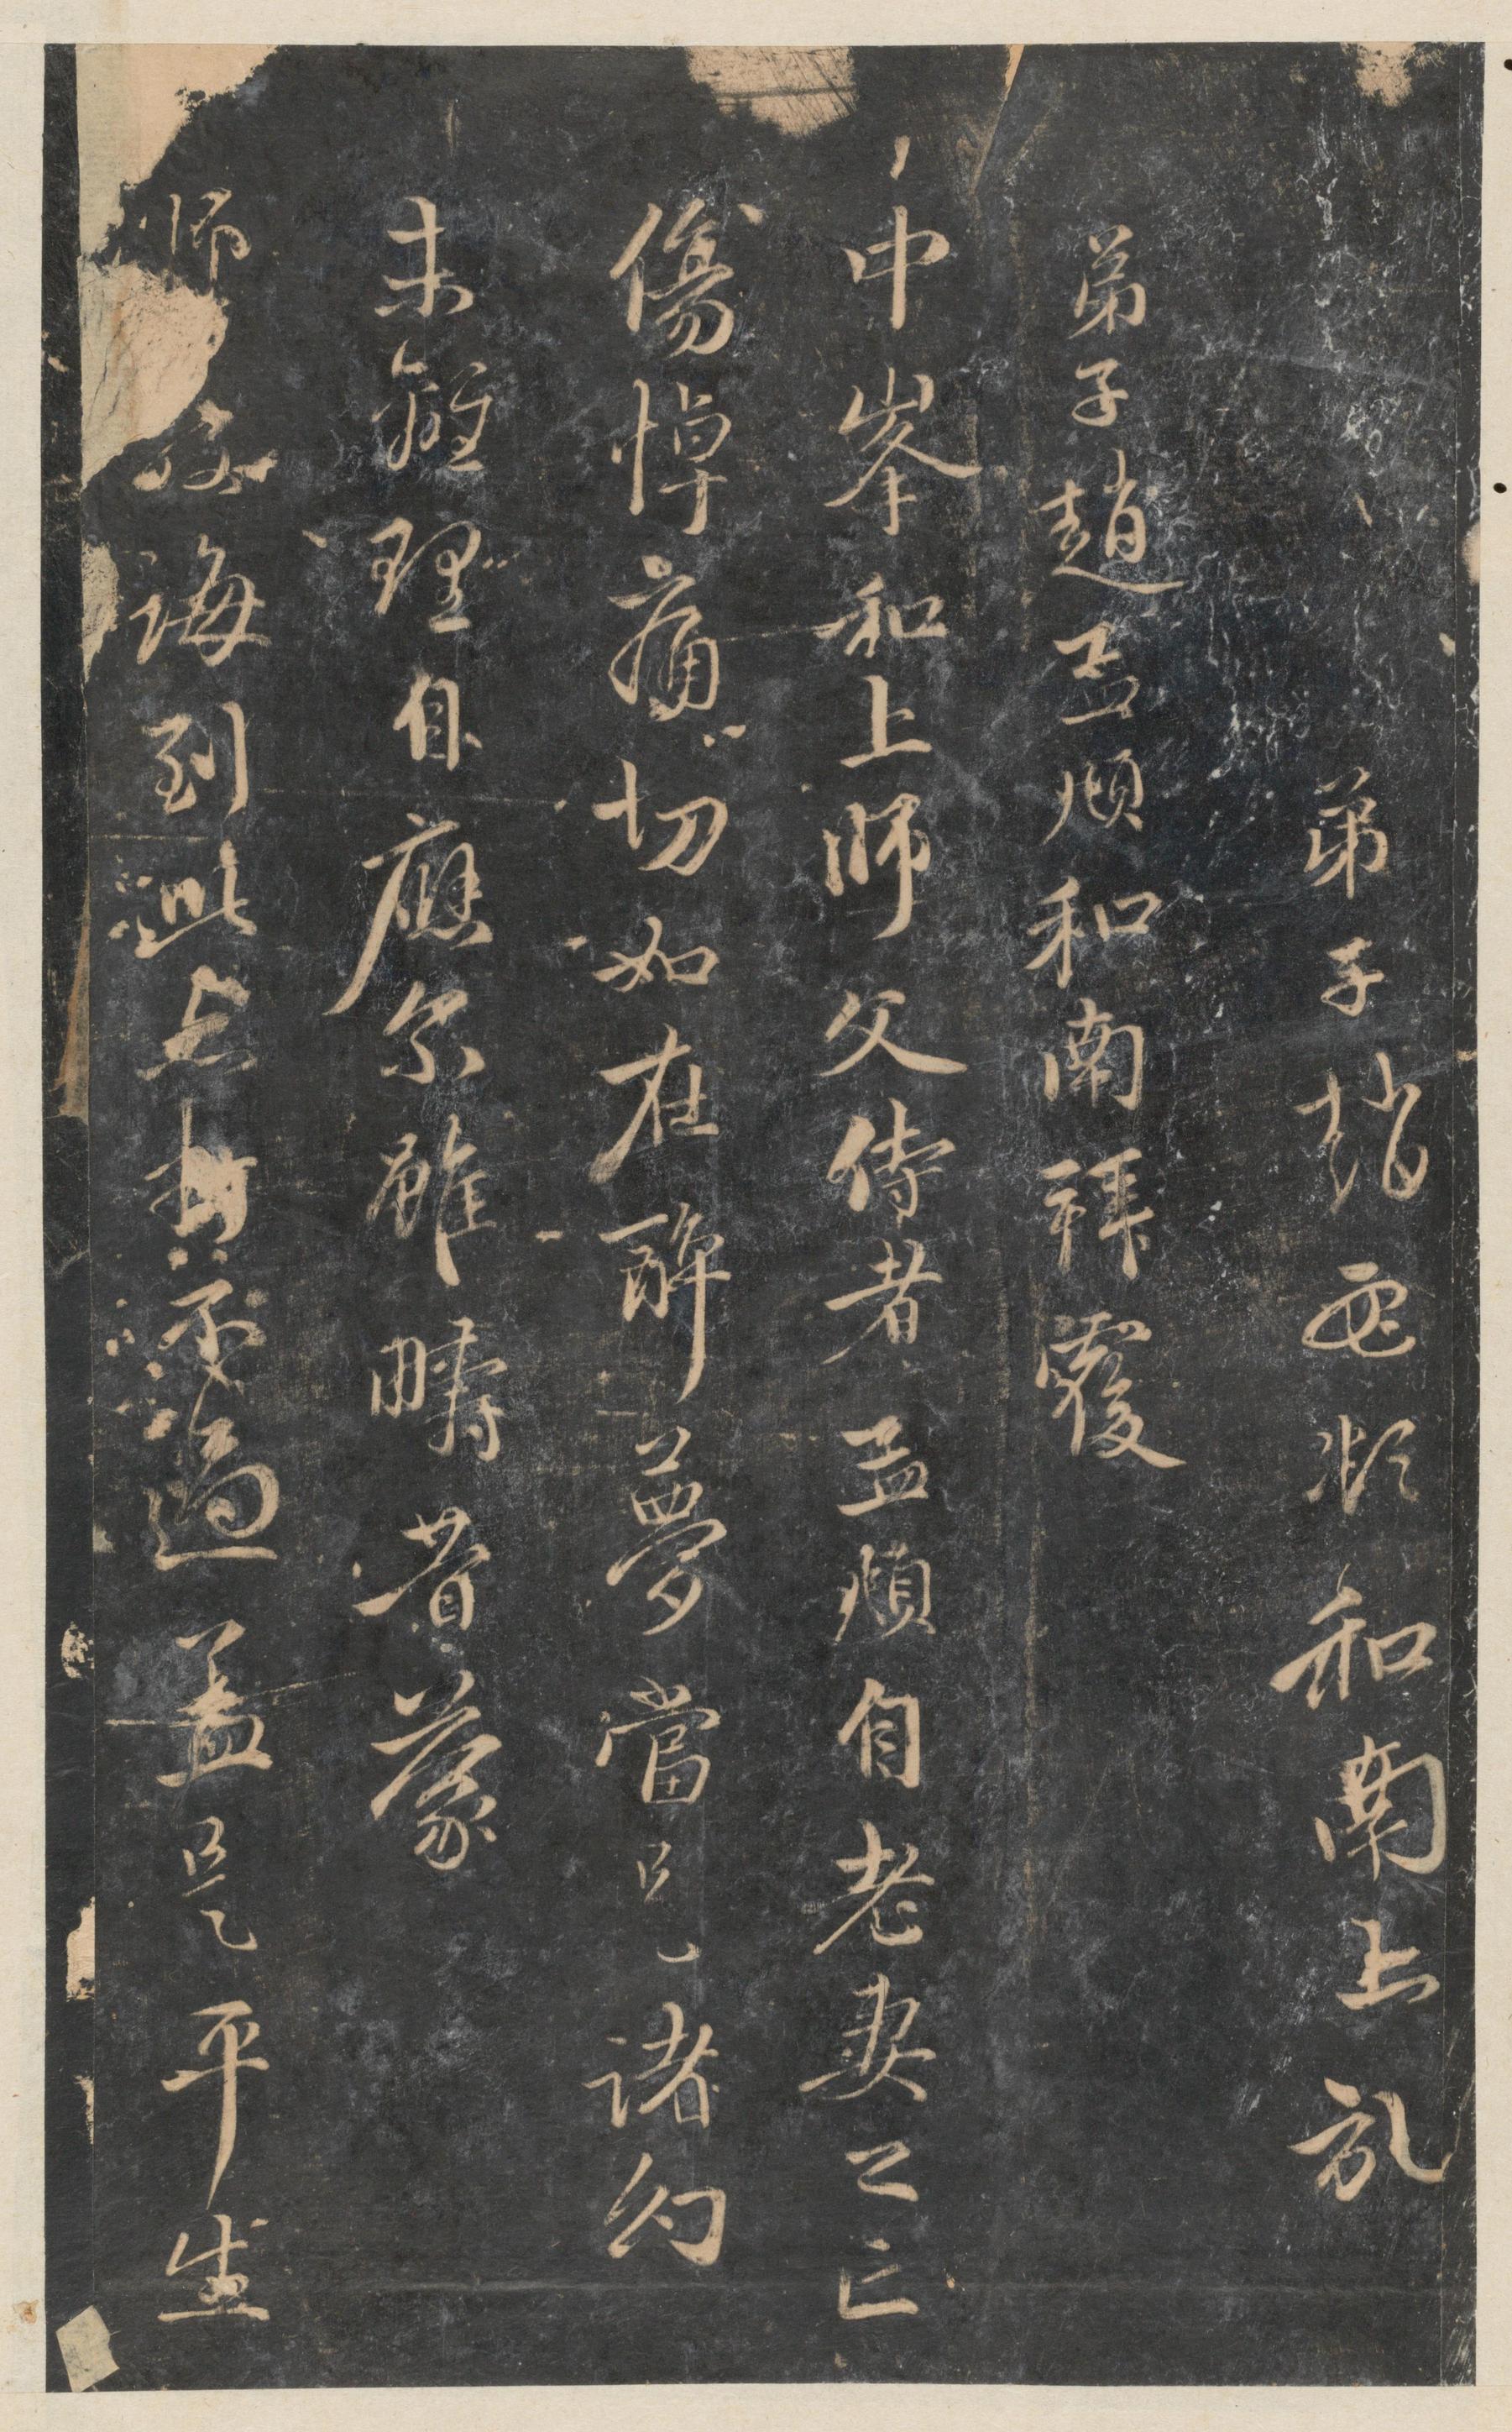 弟子趙孟頫和南上
弟子趙孟頫和南拜覆
中峯和上師父侍者孟頫自老妻之亡
傷悼痛切如在醉夢當是諸幻
未離理自應尔雖疇昔蒙
師誨到此亦打不過蓋是平生